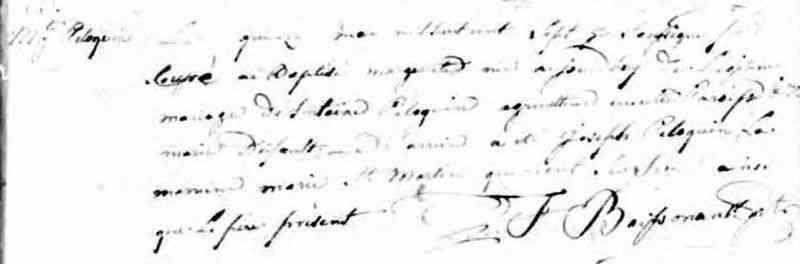 Mgte Peloquin
Le quinze mai mil huit cent sept je soussigné ptre
curé ai Baptisé marguerite née aujourdhuy du Legitime
mariage de Antoine Peloquin agriculteur en cette Paroisse & de
marie Le parrain a été Joseph Peloquin La
marraine marie St Martin qui n'ont ainsi
que le pere présent F Boissonnault ptre